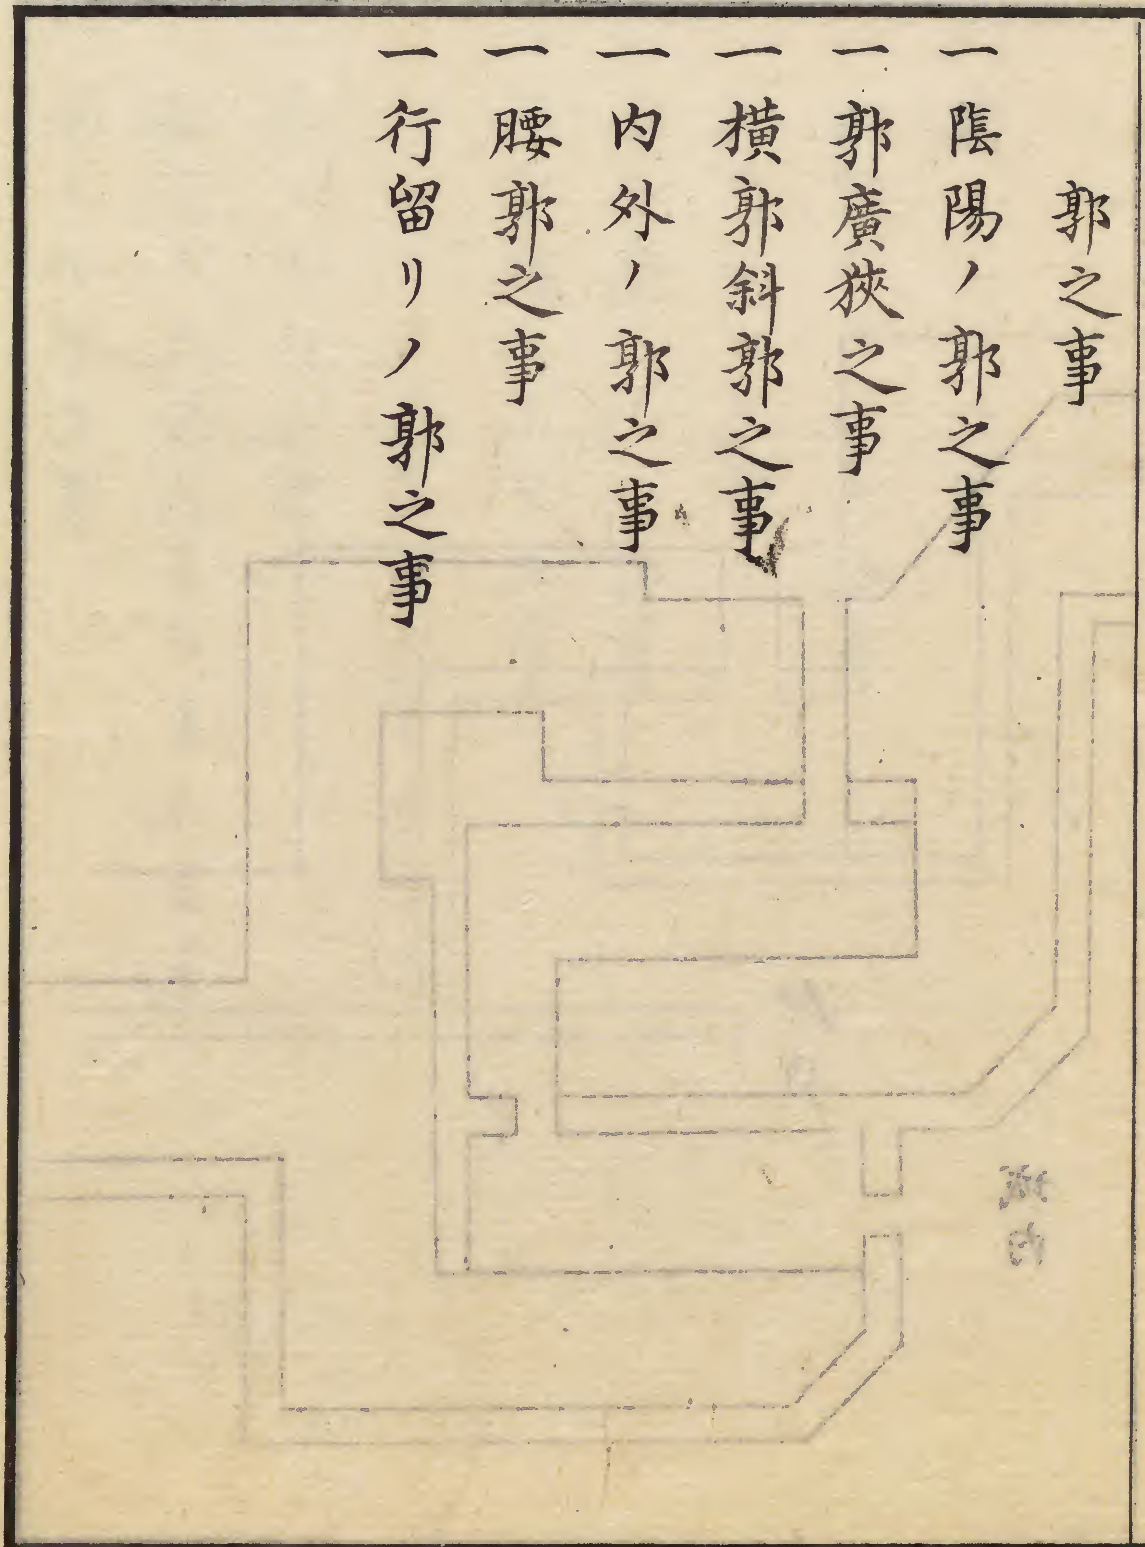 郭之事
一陰陽ノ郭之事
一郭廣狹之事
一橫郭斜郭之事
一内外ノ郭之事
一腰郭之事
一行留リノ郭之事
城内